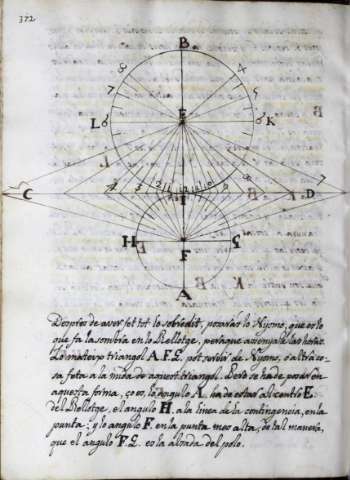 372
B
8 4
7 5
L 6 E 6 K
C 4 3 2 1 12 11 10 9 8 D 7
I
H G
F
A
Despres de aver fet tot lo sobredit, posaras lo Nyomo, que es lo
que fa la sombra en lo Rellotge, peraque amenyale las horas.
Lo mateix triangol A.F.G. pot servir de Nyomo, o altra co-
sa feta a la mida de aquest triangol. Pero se ha de posar en
aquesta forma, ço es, lo angulo A. ha de estar al centro E.
del Rellotge, el angulo H. a la linea de la contingencia, en la
punta; y lo angulo F. en la punta mes alta, de tal manera,
que el angulo F.G. es la alsada del polo.